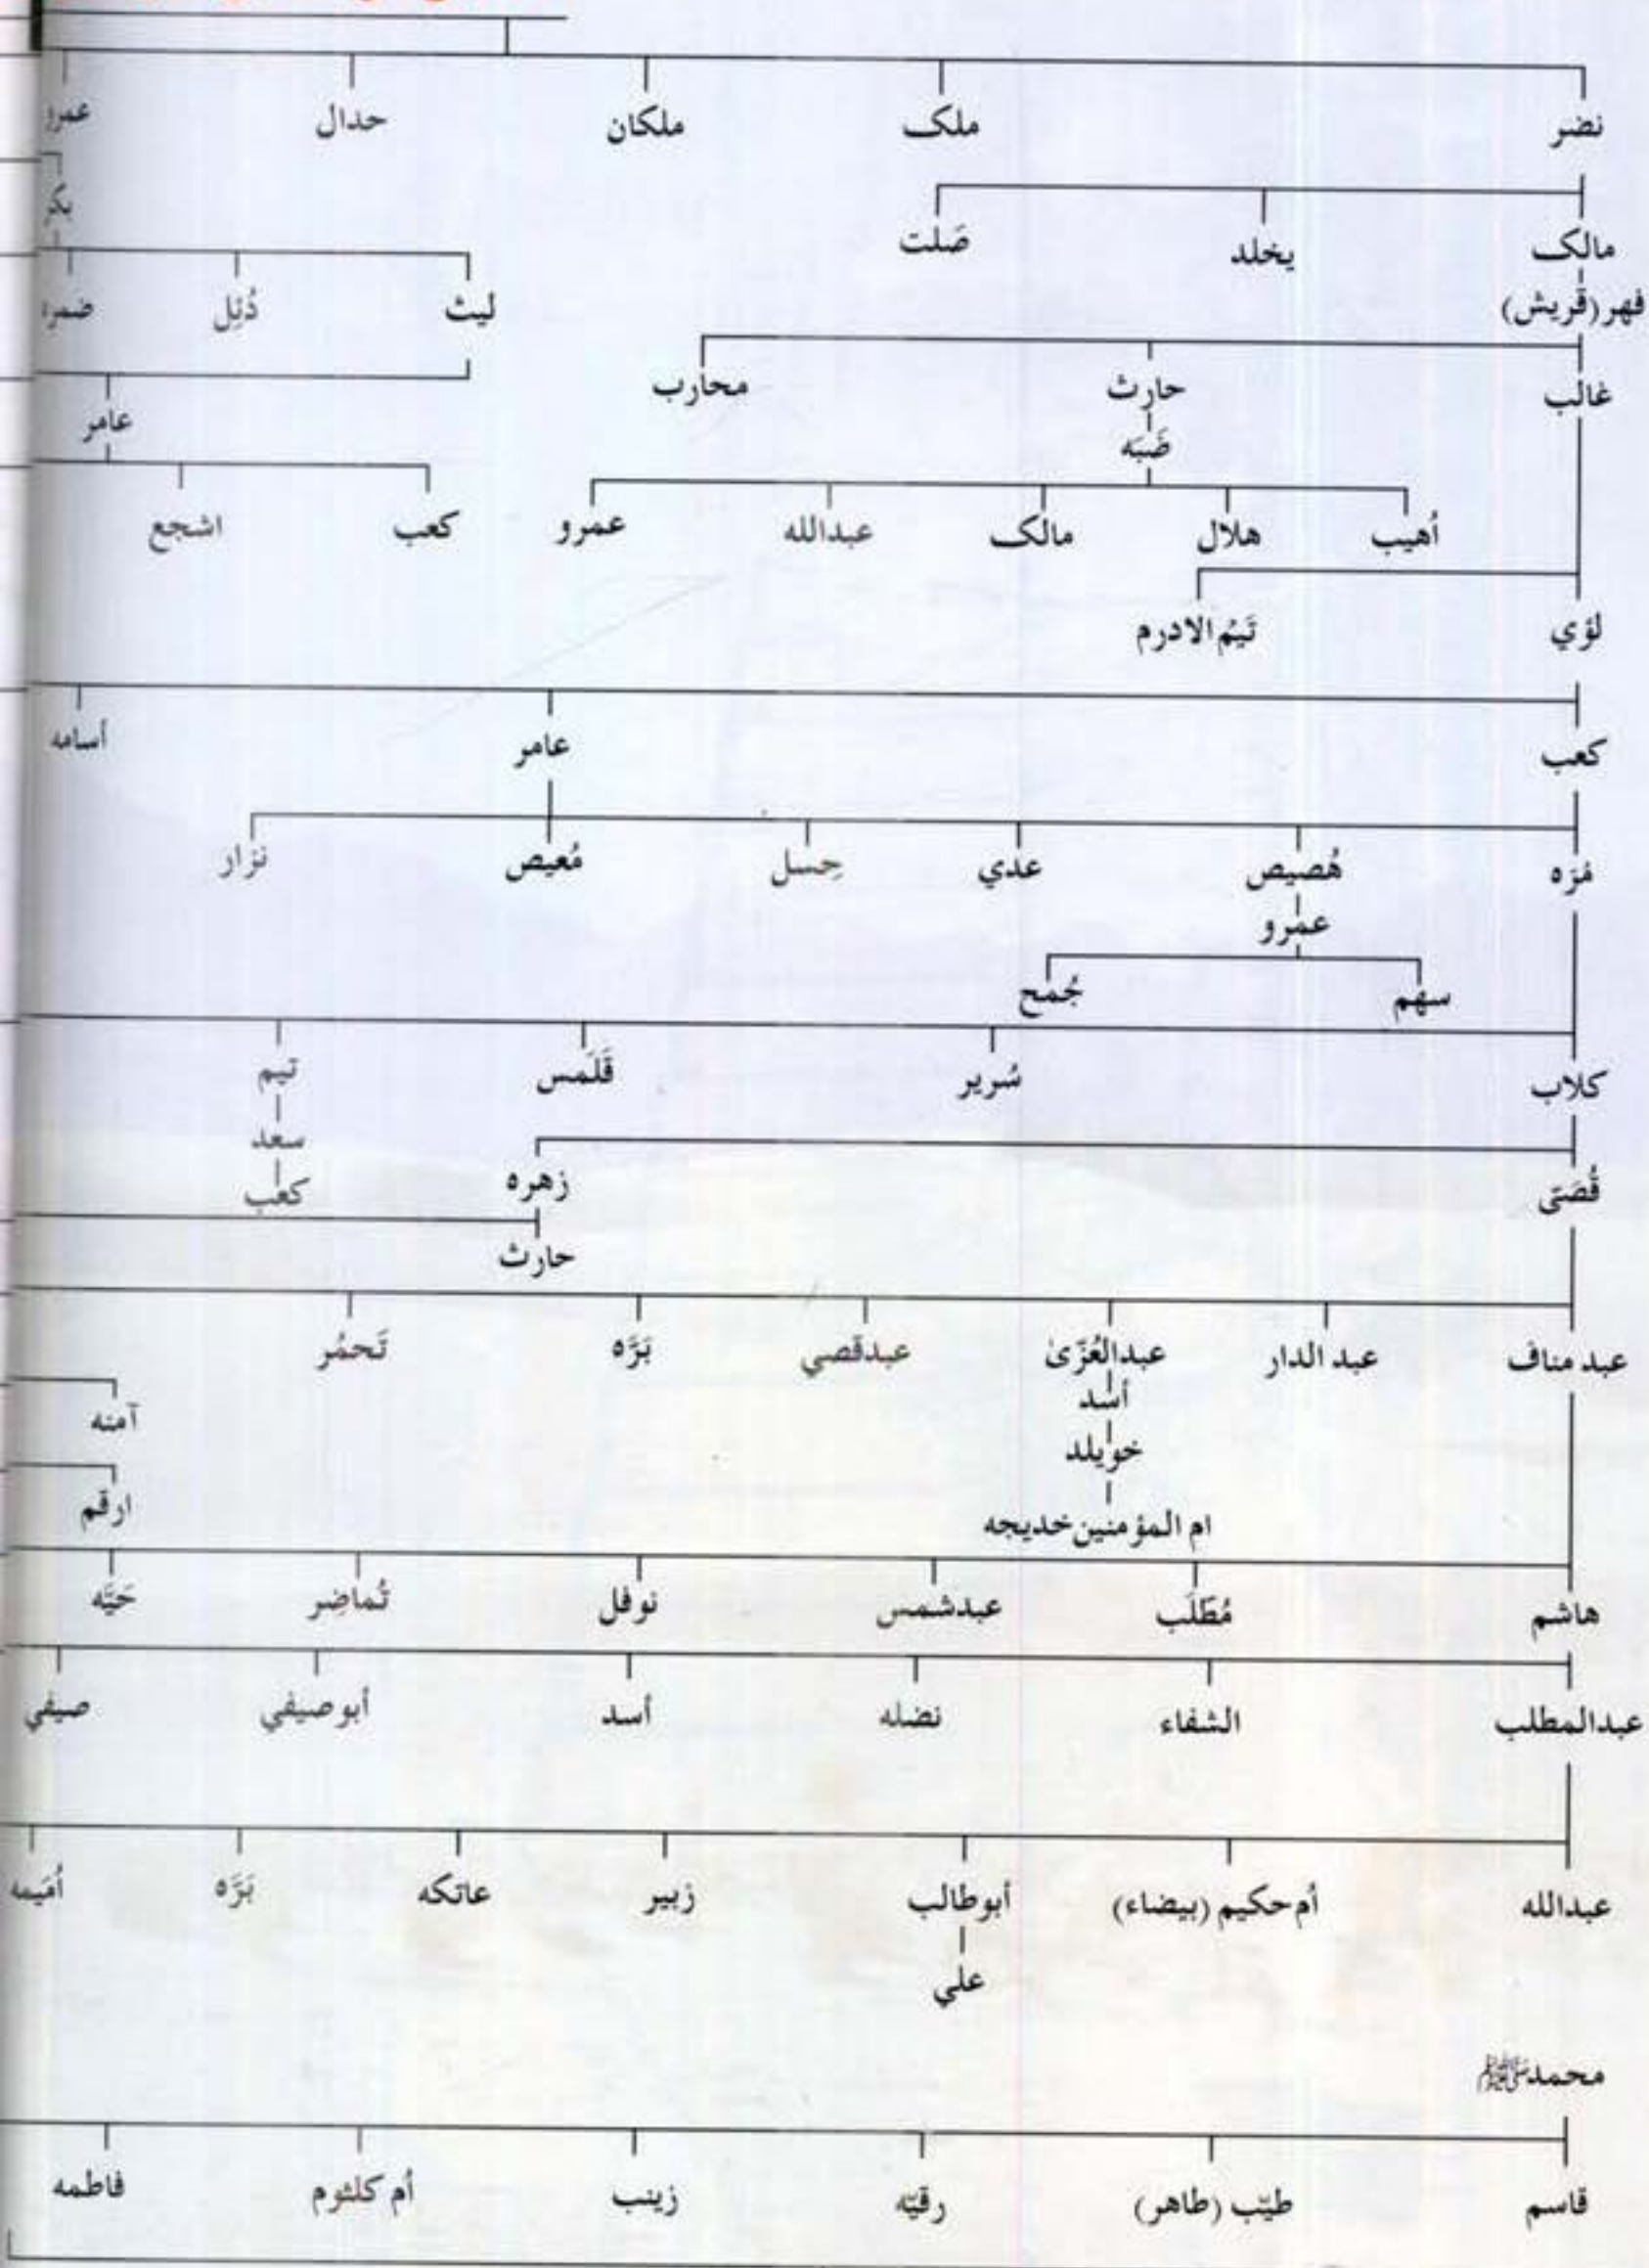 نضر ملک ملکان حدال عمرو
مالک یخلد صَلت بکر
فهر (قریش) لیث دُئِل ضمره
غالب حارث محارب عامر
ضَبَه
اُهیب هلال مالک عبدالله عمرو کعب اشجع
لؤي تَیمُ الادرم
کعب عامر أسامه
مُرَه هُصیص عدي حِسل مُعیص نزار
عمرو
سهم جُمَح
کلاب سُریر قَلَمس تیم
سعد
قُصَی زهره کعب
حارث
عبد مناف عبد الدار عبدالعُزّیٰ عبدقصي بَرَّه تَحمُر
أسد آمنه
خویلد
ام المؤمنین خدیجه ارقم
هاشم مُطَلَب عبدشمس نوفل تُماضِر حَیَّه
عبدالمطلب الشفاء نضله أسد أبوصیفي صیفي
عبدالله أم حکیم (بیضاء) أبوطالب زبیر عاتکه بَرَّه اُمَیمه
علي
محمد ﷺ
قاسم طیّب (طاهر) رقیّه زینب أم کلثوم فاطمه